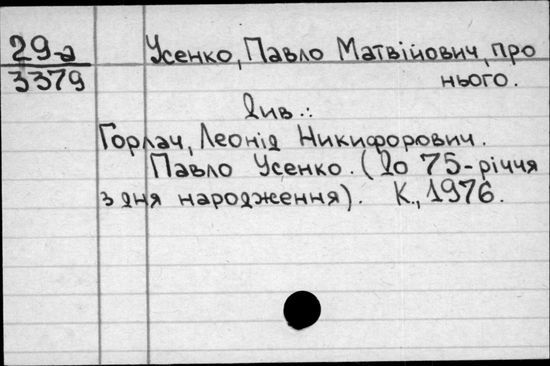 29-а
3379
Усенко, Павло Матвійович, про
нього.
Див.:
Горлач, Леонід Никифорович.
Павло Усенко. (До 75-річчя
з дня народження). К., 1976.